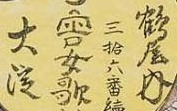 鶴屋内
三拾六番續
女歌
大淀